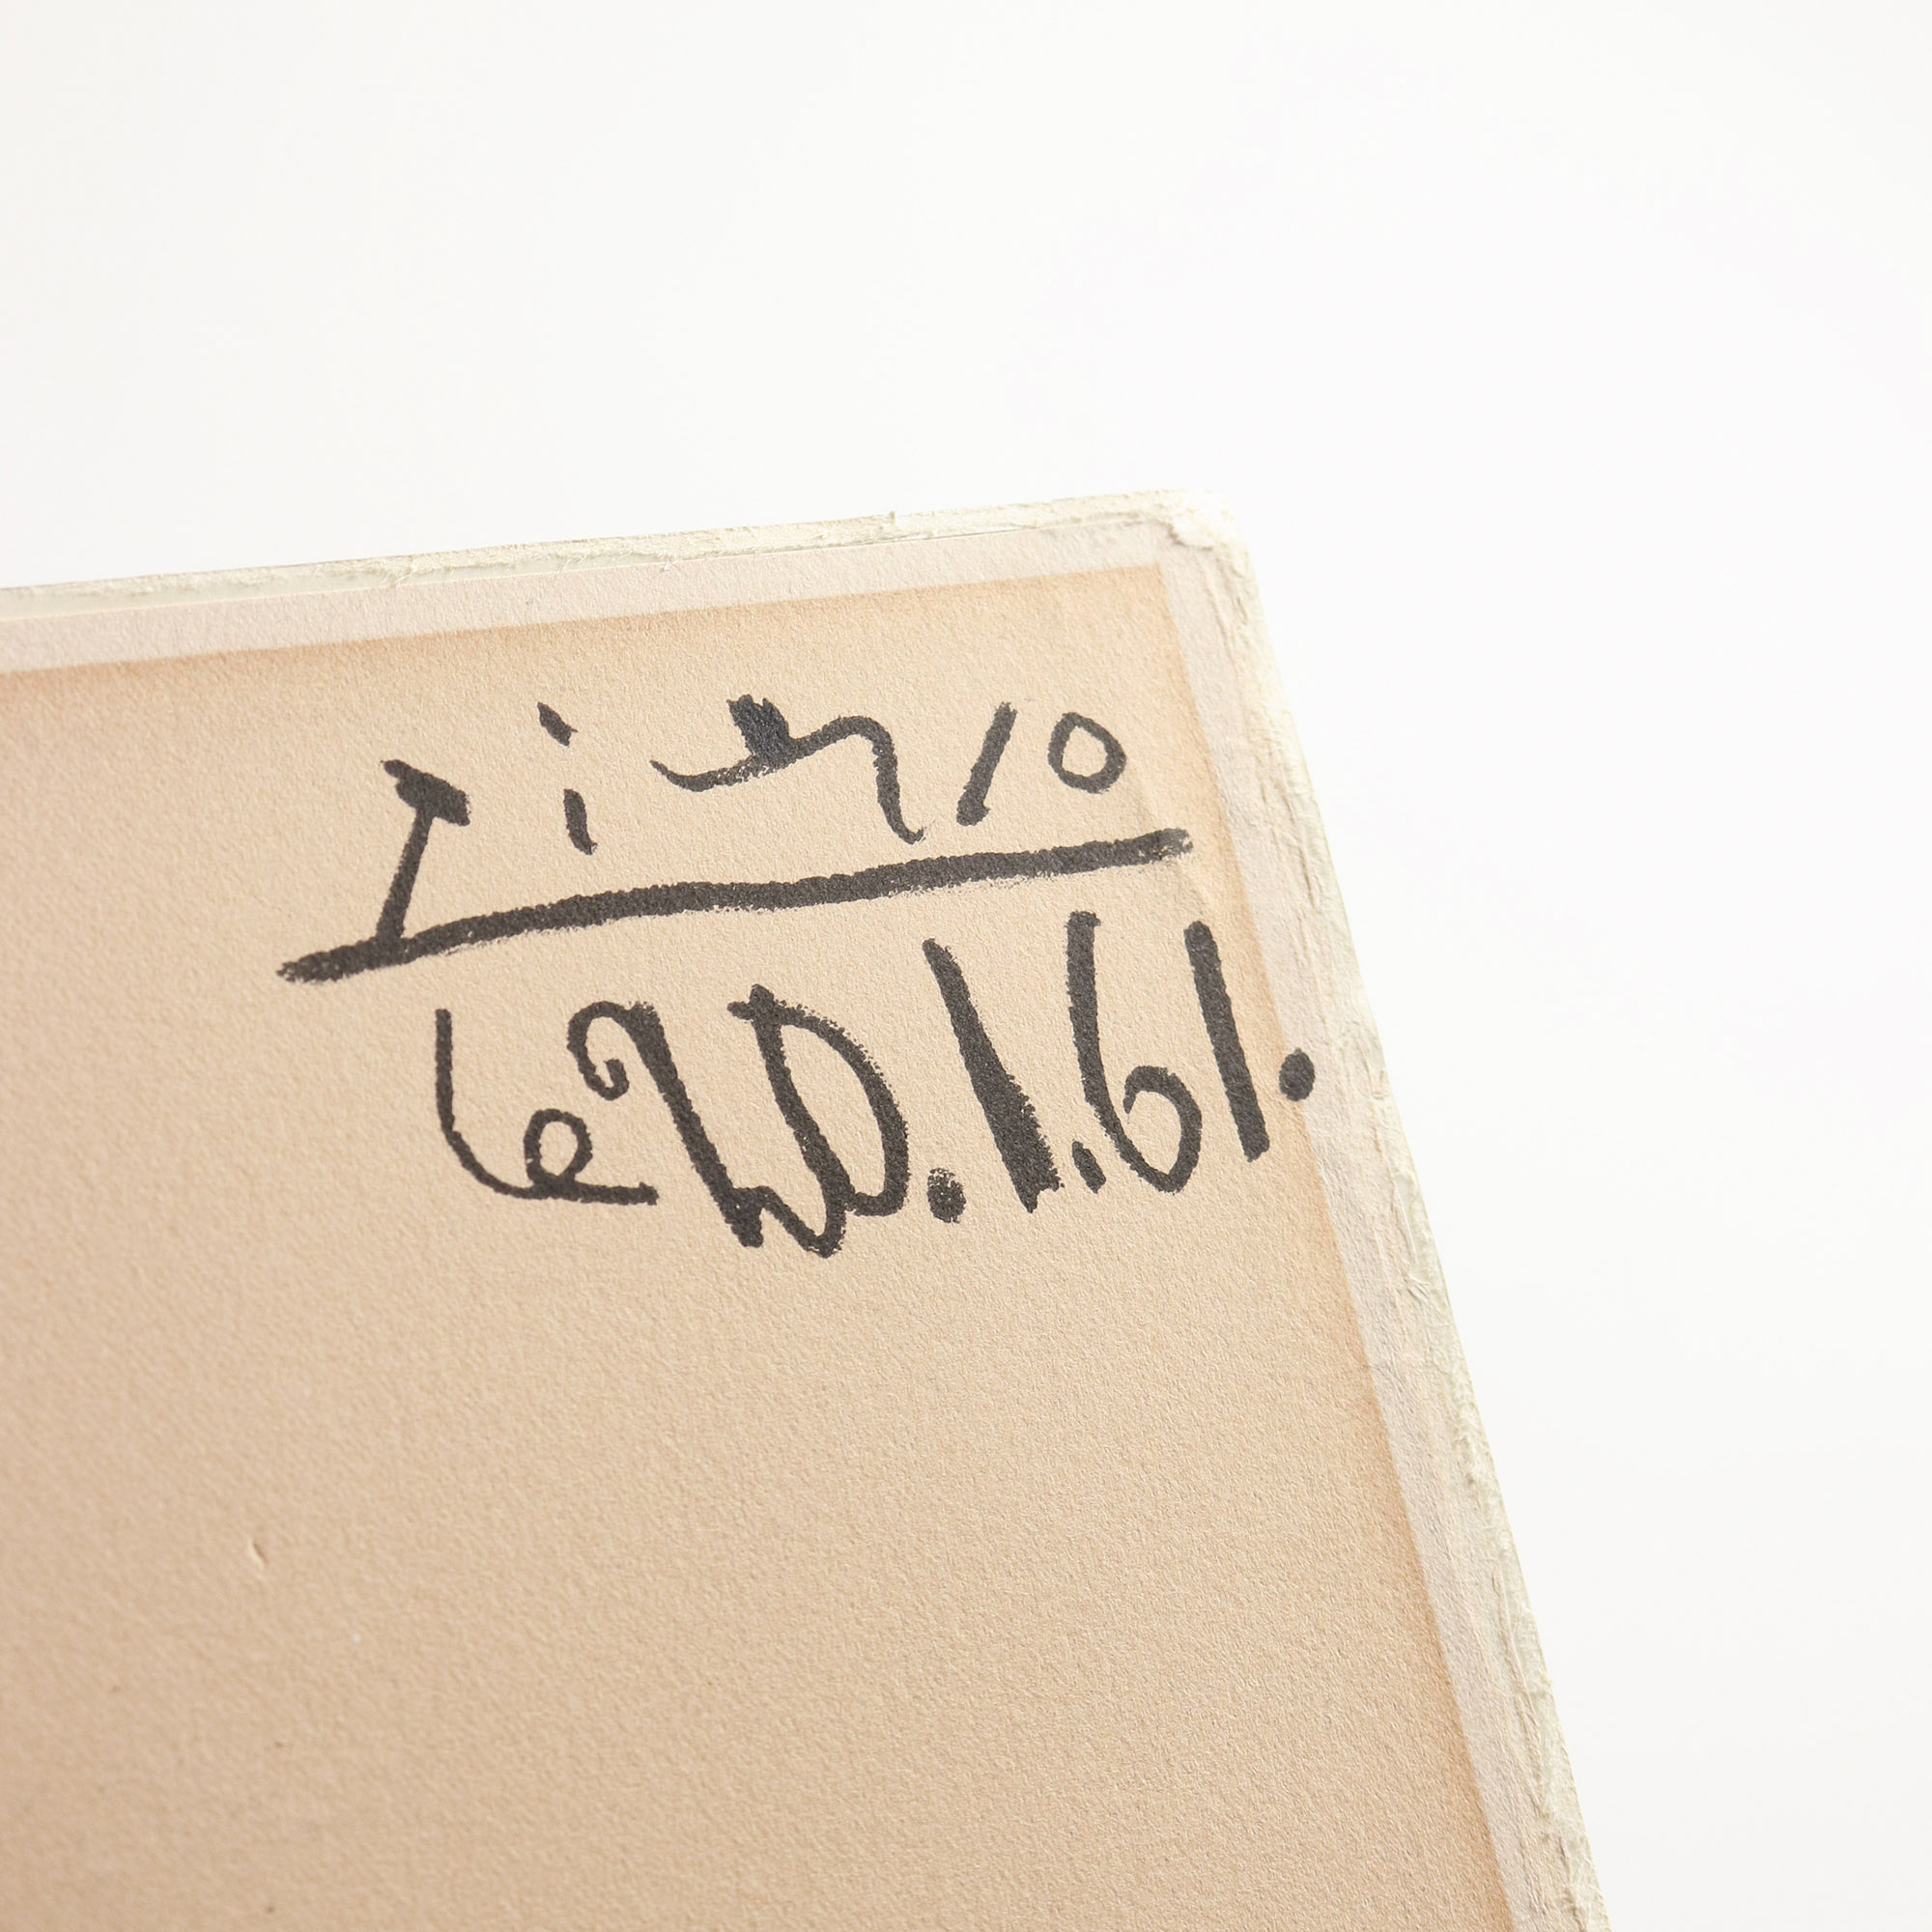 Picasso
le 20.1.61.